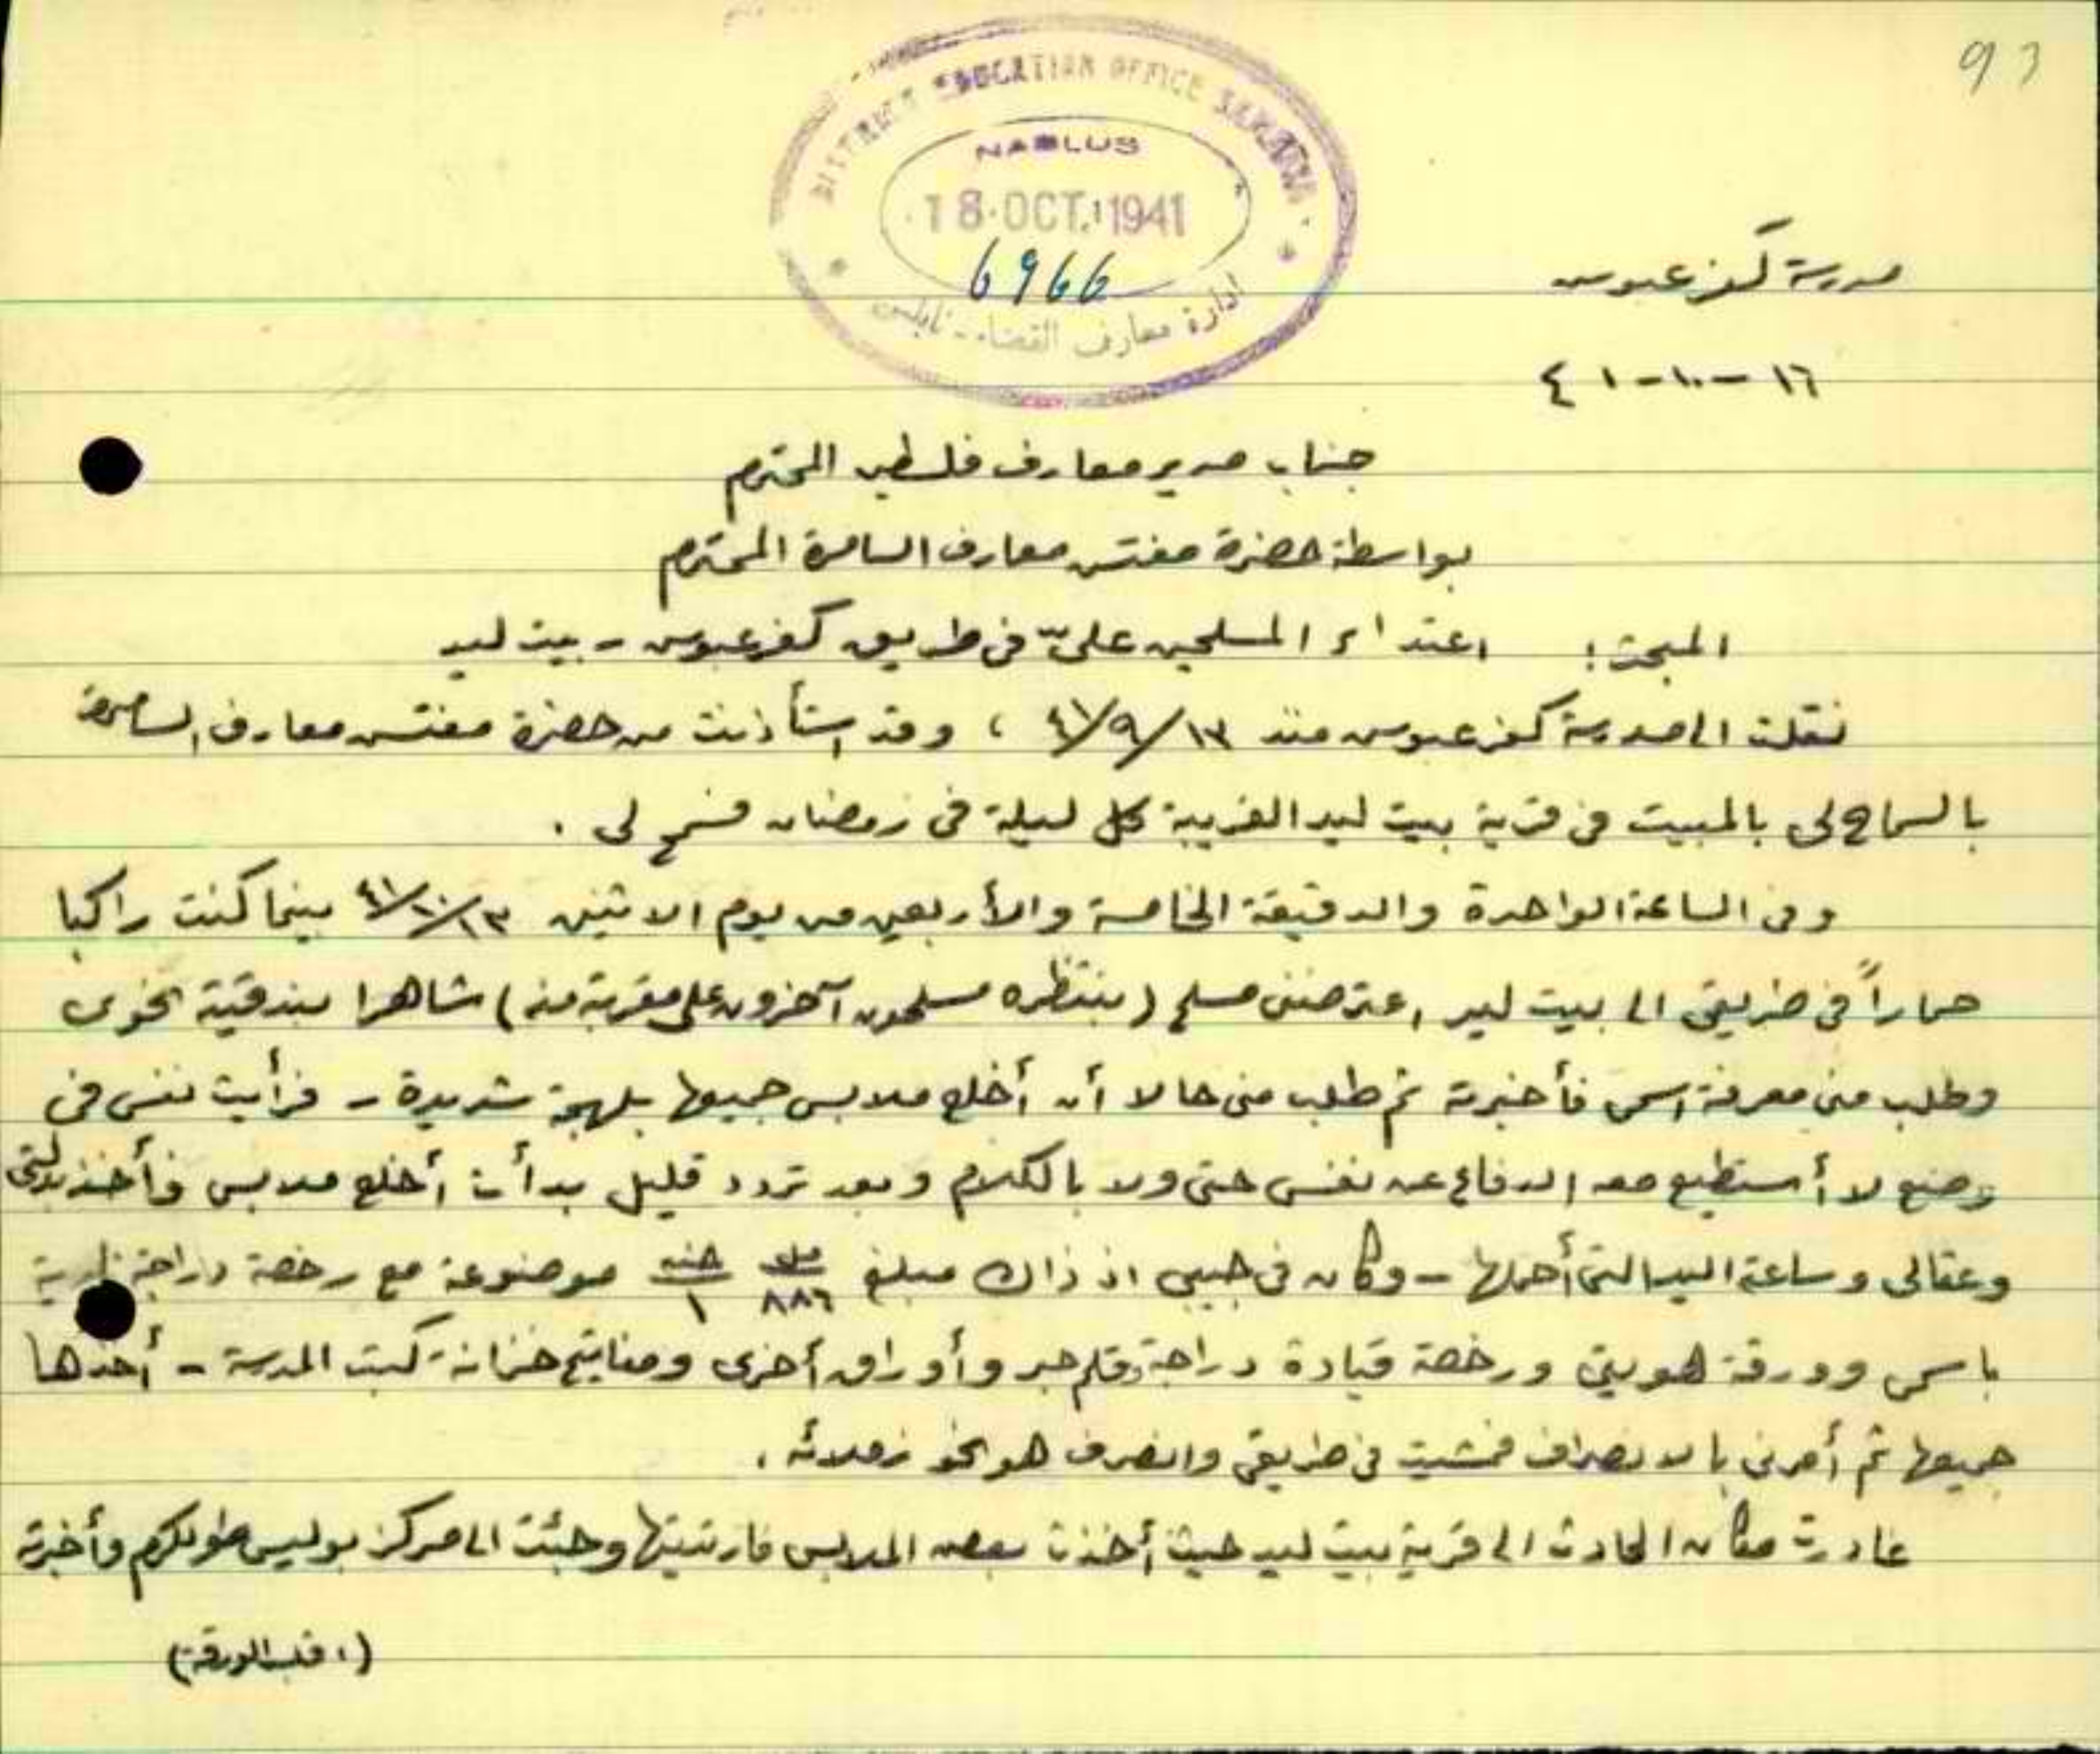 93
DISTRICT EDUCATION OFFICE SAMARIA
NABLUS
18 OCT. 1941
6966
ادارة معارف القضاء - نابلس
مدرسة كفر عبوس
١٦-١٠-٤١
جناب مدير معارف فلسطين المحترم
بواسطة حضرة مفتش معارف السامرة المحترم
المبحث: اعتداء المسلحين علىّ في طريق كفر عبوس - بيت ليد
نقلت الى مدرسة كفر عبوس منذ ١٣/٩/٤١ ، وقد استأذنت من حضرة مفتش معارف السامرة
بالسماح لي بالمبيت في قرية بيت ليد القريبة كل ليلة في رمضان فسمح لي .
وفي الساعة الواحدة والدقيقة الخامسة والأربعين من يوم الاثنين ١٣/١٠/٤١ بينما كنت راكبا
حماراً في طريقي الى بيت ليد اعترضني مسلح (ينتظره مسلحون آخرون على مقربة منه) شاهرا بندقيته نحوي
وطلب مني معرفة اسمي فأخبرته ثم طلب مني حالا أن أخلع ملابسي جميعها بلهجة شديدة - فرأيت نفسي في
وضع لا أستطيع معه الدفاع عن نفسي حتى ولا بالكلام وبعد تردد قليل بدأت أخلع ملابسي فأخذ بدلتي
وعقالي وساعة اليد التي أحملها - وكان في جيبي اذ ذاك مبلغ ٨٨٦ مل ١ جنيه موضوعة مع رخصة دراجة نارية
باسمي وورقة هويتي ورخصة قيادة دراجة وقلم حبر وأوراق أخرى ومفاتيح خزانة كتب المدرسة - أخذها
جميعها ثم أمرني بالانصراف فمشيت في طريقي وانصرف هو نحو زملائه .
غادرت مكان الحادث الى قرية بيت ليد حيث أخذت بعض الملابس فارتديتها وجئت الى مركز بوليس طولكرم وأخبرته
(اقلب الورقة)